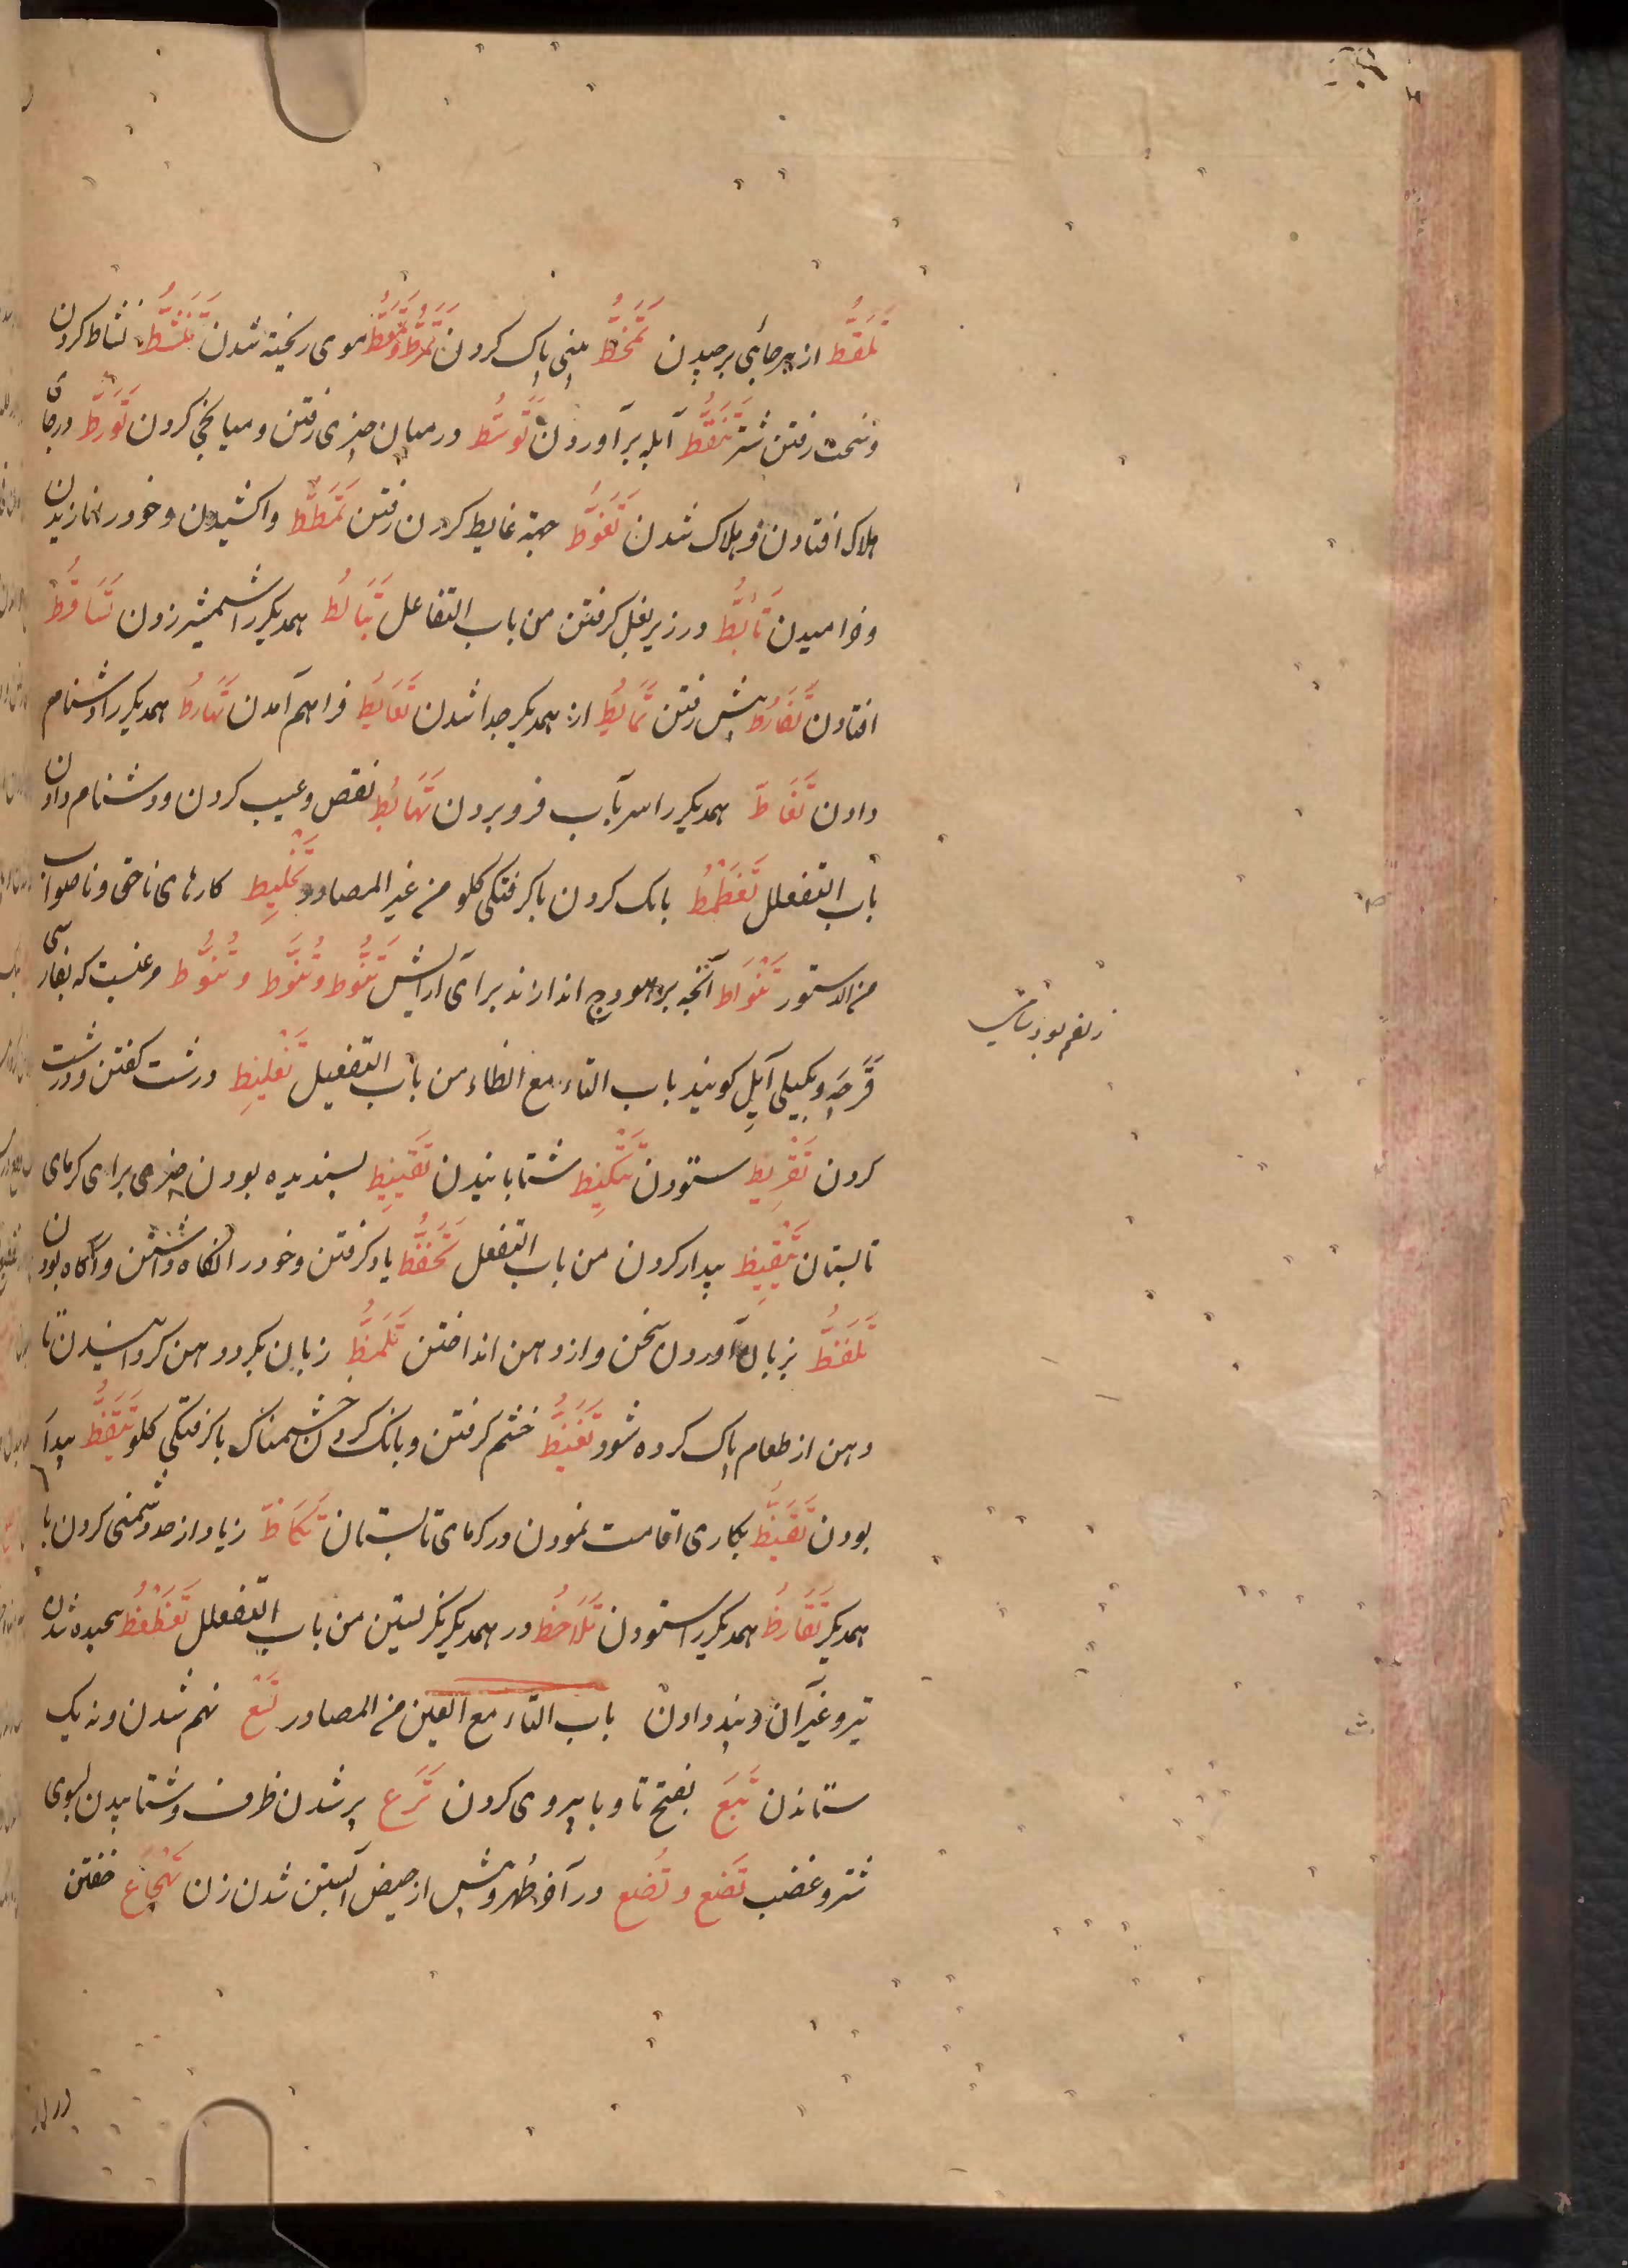 تَلَقُّط از هر جائی برچیدن تَمَخُّط بینی پاک کردن تَمَرُّط وتَمَعُّط موی ریخته شدن تَنَشُّط نشاط کردن
وسخت رفتن شتر تَنَفُّط آبله برآوردن تَوَسُّط درمیان چیزی رفتن ومیانجی کردن تَوَرُّط درجای
هلاک افتادن وهلاک شدن تَغَوُّط جهة غایط کردن رفتن تَمَطُّط واکشیدن وخود را نازیدن
وخرامیدن تَأَبُّط در زیر بغل کرفتن من باب التفاعل تَبَالُط همدیکر را شمشیر زدن تَسَاقُط
افتادن تَفَارُط پیش رفتن تَمَایُط از همدیکر جدا شدن تَعَایُط فراهم آمدن تَهَارُط همدیکر را دشنام
دادن تَغَاطّ همدیکر را سر بآب فرو بردن تَهَایُط نقص وعیب کردن ودشنام دادن
باب التفعلل تَغَطْمُط بانک کردن با کرفتکی کلو من غیر المصادر تَخْلِیط کارهای ناحق وناصواب
من الدستور تَنْوَاط آنچه بر هودج اندازند برای آرایش تَنَوُّط وتُنَوِّط وتُنَوُّط مرغیست که بفارسی
گویند باب التاء مع الظاء من باب التفعیل تَغْلِیظ درشت کفتن ودرشت
کردن تَقْرِیظ ستودن تَنْکِیظ شتابانیدن تَقْیِیظ بسندیده بودن چیزی برای کرمای
تابستان تَیْقِیظ بیدار کردن من باب التفعل تَحَفُّظ یاد کرفتن وخود را نکاه داشتن وآکاه بودن
تَلَفُّظ بزبان آوردن سخن واز دهن انداختن تَلَمُّظ زبان بکرد دهن کردانیدن تا
دهن از طعام پاک کرده شود تَغَیُّظ خشم کرفتن وبانک کردن خشمناک با کرفتکی کلو تَیَقُّظ بیدار
بودن تَقَیُّظ بکاری اقامت نمودن در کرمای تابستان تَکَاظّ زیاد از حد دشمنی کردن با
همدیکر تَقَارُظ همدیکر را ستودن تَلَاحُظ در همدیکر نکریستین من باب التفعلل تَعَظْعُظ پیچیده شدن
تیر وغیر آن وپند دادن باب التاء مع العین من المصادر تَسْع نهم شدن ونه یک
ستاندن تَبَعَ بفتح تا وبا پیروی کردن تَرَع پر شدن ظرف وشتابیدن بسوی
شر وغضب تَضَع وتُضع در آخر طُهر وپیش از حیض آبستن شدن زن تَهْجَاع خفتن